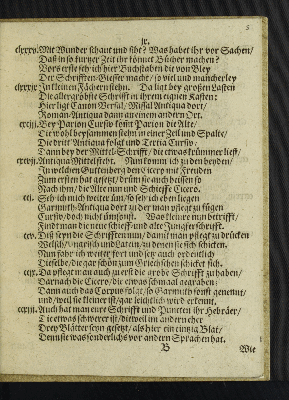 5
jx.
Mit Wunder schaut und siht? Was habet ihr vor Sachen/
Daß in so kurzer Zeit ihr könnet Bücher machen?
Vors erste seh ich hier Buchstaben die von Bley
Der Schrifften-Giesser macht / so viel und mancherley
In kleinen Fächern stehn. Da ligt bey großen Lasten
Die allergröste Schrifft in ihrem eignen Kasten:
Hier ligt Canon Versal / Missal Antiqua dort/
Roman-Antiqua dann an einem andern Ort.
Vor Parlon Cursiv sonst Parlon die Alte/
Die wohl beysammen stehn in einer Zeil und Spalte/
Die dritt Antiqua folgt und Tertia Cursiv.
Dann bey der Mittel-Schrifft / die etwas krümmer lieff/
Antiqua Mittel steht. Nun komm ich zu den beyden/
In welchen Guttenberg den Cicero mit Freuden
Zum ersten hat gesetzt / drüm sie auch heissen so
Nach ihm / die Alte nun und Schieffe Cicero.
Seh ich mich weiter üm / so seh ich eben liegen
Garmuth-Antiqua dort zu der man pflegt zu fügen
Cursiv / doch nicht ümsonst. Was kleinre nun betrifft/
Findt man die neue schieff und alte Jungfer Schrifft.
Diß seyn die Schrifften nun / damit man pflegt zu drücken
Welsch / Ungrisch und Latein / zu denen sie sich schicken.
Nun fahr ich weiter fort und seh auch ordentlich
Dieselbe / die gar schön zum Griechschen schicket sich.
Da pflegt man auch zu erst die grobe Schrifft zu haben/
Darnach die Cicero / die etwas schmaal gegraben:
Dann auch das Corpus folgt / so Garmuth sonst genennt/
und / weil sie kleiner ist / gar leichtlich wird erkennt.
Auch hat man eurer Schrifft und Puncten ihr Hebräer/
Die etwas schwerer ist / dieweil im andern eher
Drey Blätter seyn gesetzt / als hier ein einzig Blat/
Denn sie was sonderlichs vor andern Sprachen hat.
B Wie